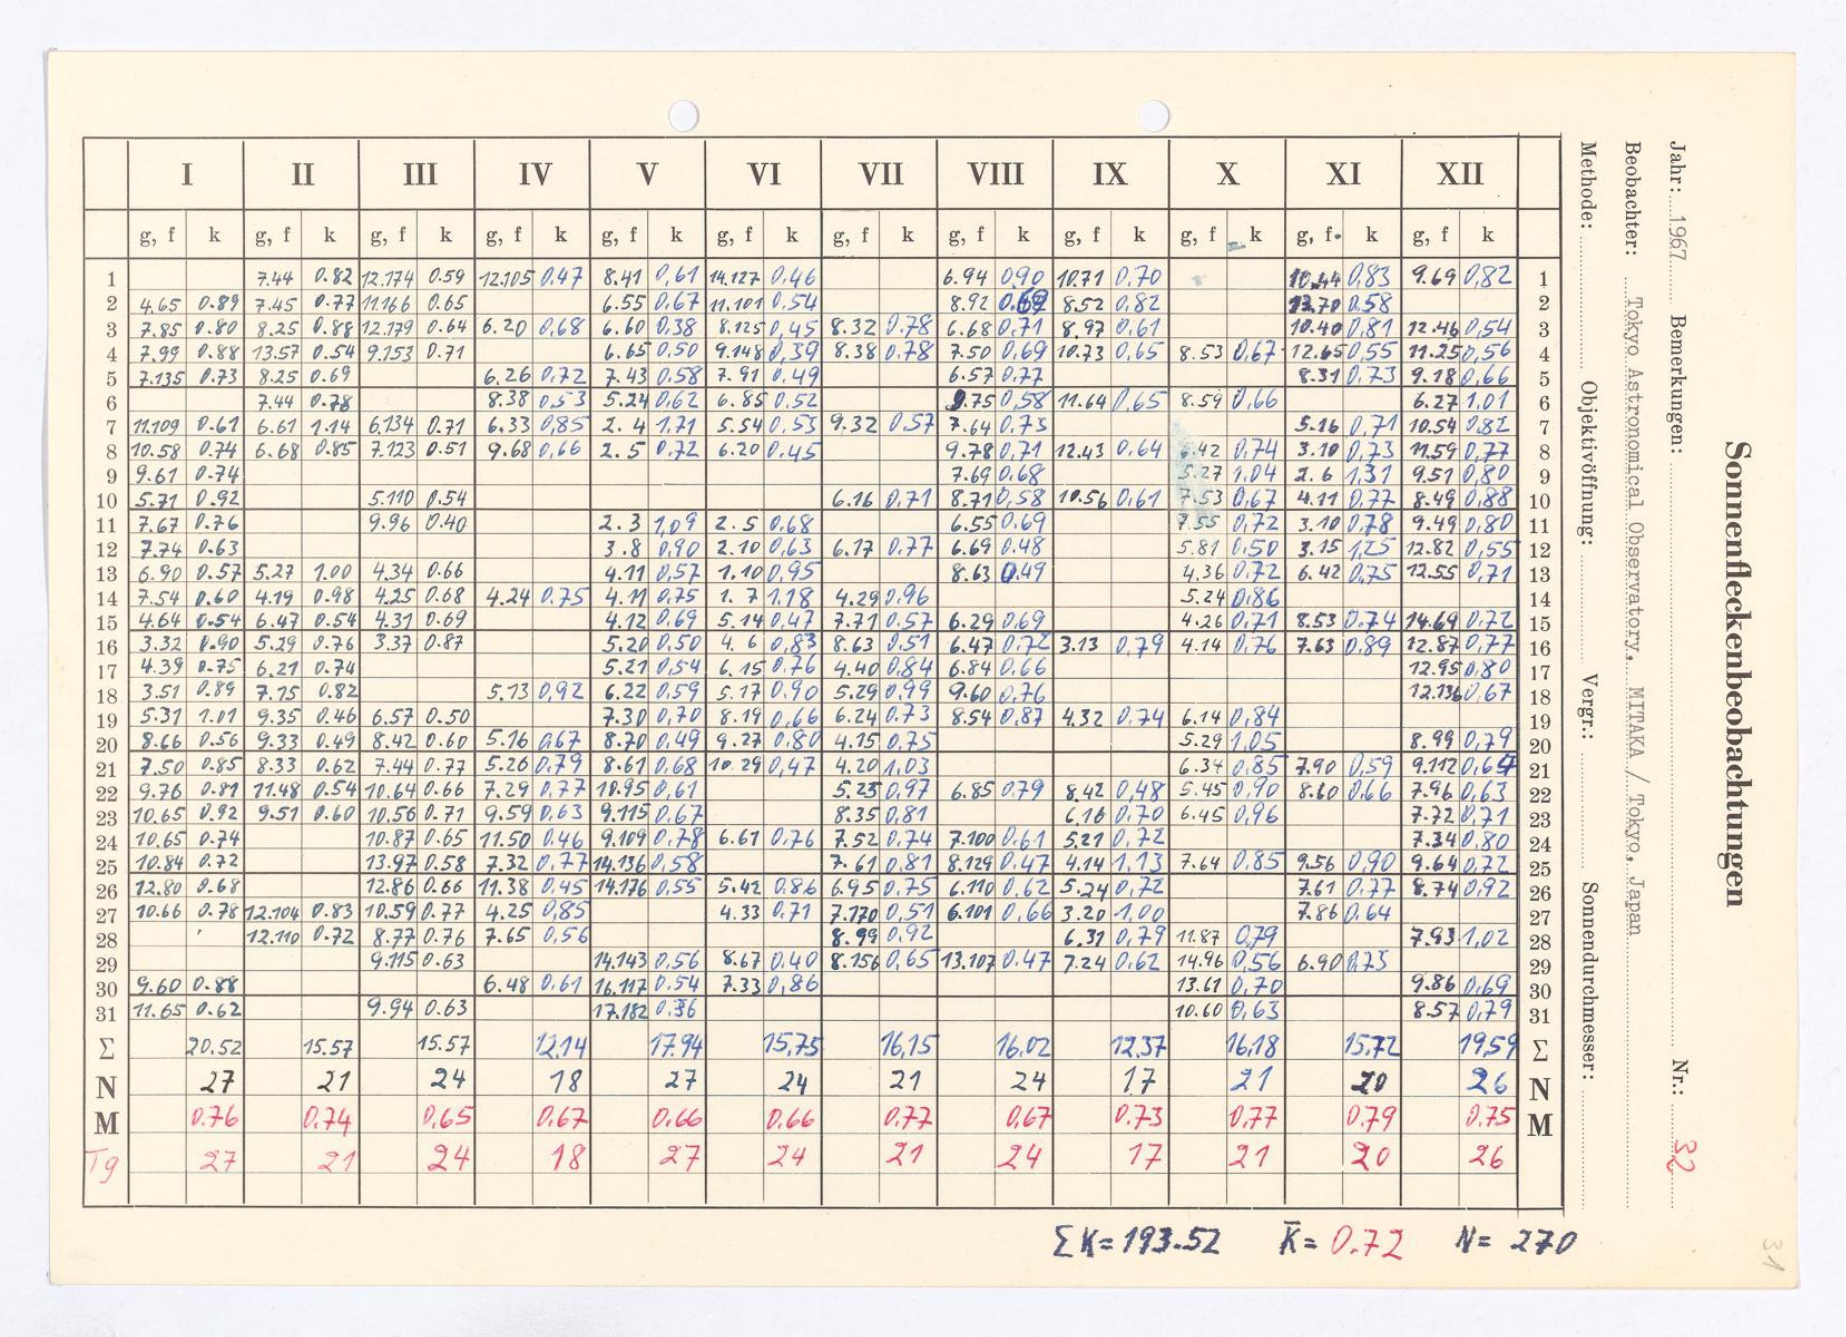 I II III IV V VI VII VIII IX X XI XII
g, f k g, f k g, f k g, f k g, f k g, f k g, f k g, f k g, f k g, f k g, f k g, f k
1 7.44 0.82 12.174 0.59 12.105 0,47 8.41 0,61 14.127 0,46 6.94 0,90 10.71 0,70 10.44 0,83 9.69 0,82 1
2 4.65 0.89 7.45 0.77 11.166 0.65 6.55 0,67 11.101 0,54 8.92 8.52 0,82 0,58 2
3 7.85 0.80 8.25 0.88 12.179 0.64 6.20 0,68 6.60 0,38 8.125 0,45 8.32 0.78 6.68 0,71 8.97 0,61 10.40 0,81 12.46 0,54 3
4 7.99 0.88 13.57 0.54 9.153 0.71 6.65 0,50 9.148 0,39 8.38 0,78 7.50 0,69 10.73 0,65 8.53 0,67 12.65 0,55 11.25 0,56 4
5 7.135 0.73 8.25 0.69 6.26 0,72 7.43 0,58 7.91 0,49 6.57 0,77 8.31 0,73 9.18 0,66 5
6 7.44 0.78 8.38 0,53 5.24 0,62 6.85 0,52 9.75 0,58 11.64 0,65 8.59 0,66 6.27 1,01 6
7 11.109 0.61 6.61 1.14 6.134 0.71 6.33 0,85 2.4 1,71 5.54 0,53 9.32 0,57 7.64 0,73 5.16 0,71 10.54 0,82 7
8 10.58 0.74 6.68 0.85 7.123 0.51 9.68 0,66 2.5 0,72 6.20 0,45 9.78 0,71 12.43 0,64 6.42 0,74 3.10 0,73 11.59 0,77 8
9 9.61 0.74 7.69 0.68 5.27 1,04 2.6 1,31 9.51 0,80 9
10 5.71 0.92 5.110 0.54 6.16 0,71 8.71 0,58 10.56 0,61 7.53 0,67 4.11 0,77 8.49 0,88 10
11 7.67 0.76 9.96 0.40 2.3 1,09 2.5 0,68 6.55 0.69 7.55 0,72 3.10 0,78 9.49 0,80 11
12 7.74 0.63 3.8 0,90 2.10 0,63 6.17 0,77 6.69 0.48 5.81 0,50 3.15 1,25 12.82 0,55 12
13 6.90 0.57 5.27 1.00 4.34 0.66 4.11 0,57 1.10 0,95 8.63 0.49 4.36 0,72 6.42 0,75 12.55 0,71 13
14 7.54 0.60 4.19 0.98 4.25 0.68 4.24 0.75 4.11 0,75 1.7 1,18 4.29 0,96 5.24 0,86 14
15 4.64 0.54 6.47 0.54 4.31 0.69 4.12 0,69 5.14 0,47 7.71 0,57 6.29 0,69 4.26 0,71 8.53 0,74 14.69 0,72 15
16 3.32 0.90 5.29 0.76 3.37 0.87 5.20 0,50 4.6 0,83 8.63 0,51 6.47 0,72 3.13 0,79 4.14 0,76 7.63 0,89 12.87 0,77 16
17 4.39 0.75 6.21 0.74 5.21 0,54 6.15 0,76 4.40 0,84 6.84 0,66 12.95 0,80 17
18 3.51 0.89 7.15 0.82 5.13 0,92 6.22 0,59 5.17 0,90 5.29 0,99 9.60 0,76 12.136 0,67 18
19 5.31 1.01 9.35 0.46 6.57 0.50 7.30 0,70 8.19 0,66 6.24 0.73 8.54 0,87 4.32 0,74 6.14 0,84 19
20 8.66 0.56 9.33 0.49 8.42 0.60 5.16 0,67 8.70 0,49 9.27 0,80 4.15 0,75 5.29 1,05 8.99 0,79 20
21 7.50 0.85 8.33 0.62 7.44 0.77 5.26 0,79 8.61 0,68 10.29 0,47 4.20 1,03 6.34 0,85 7.90 0,59 9.112 21
22 9.76 0.81 11.48 0.54 10.64 0.66 7.29 0,77 10.95 0,61 5.23 0,97 6.85 0,79 8.42 0,48 5.45 0,90 8.60 0,66 7.96 0,63 22
23 10.65 0.92 9.51 0.60 10.56 0.71 9.59 0,63 9.115 0,67 8.35 0,81 6.16 0,70 6.45 0,96 7.72 0,71 23
24 10.65 0.74 10.87 0.65 11.50 0.46 9.109 0,78 6.61 0,76 7.52 0,74 7.100 0.61 5.21 0,72 7.34 0,80 24
25 10.84 0.72 13.97 0.58 7.32 0,77 14.136 0,58 7.61 0,81 8.129 0.47 4.14 1,13 7.64 0,85 9.56 0,90 9.64 0,72 25
26 12.80 0.68 12.86 0.66 11.38 0,45 14.176 0,55 5.42 0,86 6.95 0,75 6.110 0,62 5.24 0,72 7.61 0,77 8.74 0,92 26
27 10.66 0.78 12.104 0.83 10.59 0.77 4.25 0,85 4.33 0,71 7.170 0,51 6.101 0,66 3.20 1,00 7.86 0,64 27
28 12.110 0.72 8.77 0.76 7.65 0,56 8.99 0,92 6.31 0,79 11.87 0,79 7.93 1,02 28
29 9.115 0.63 14.143 0,56 8.67 0,40 8.156 0,65 13.107 0.47 7.24 0.62 14.96 0,56 6.90 0,73 29
30 9.60 0.88 6.48 0,61 16.117 0.54 7.33 0,86 13.61 0,70 9.86 0,69 30
31 11.65 0.62 9.94 0.63 17.182 0.36 10.60 0,63 8.57 0,79 31
Σ 20.52 15.57 15.57 12,14 17.94 15,75 16,15 16,02 12,37 16,18 15,72 19,59 Σ
N 27 21 24 18 27 24 21 24 17 21 20 26 N
M 0.76 0.74 0,65 0,67 0,66 0.66 0.77 0,67 0.73 0,77 0.79 0.75 M
Tg 27 21 24 18 27 24 21 24 17 21 20 26
Σ K = 193.52 K̅ = 0.72 N = 270
Sonnenfleckenbeobachtungen
Jahr: 1967 Bemerkungen: Nr.: 32
Beobachter: Tokyo Astronomical Observatory, MITAKA / Tokyo, Japan
Methode: Objektivöffnung: Vergr.: Sonnendurchmesser:
31